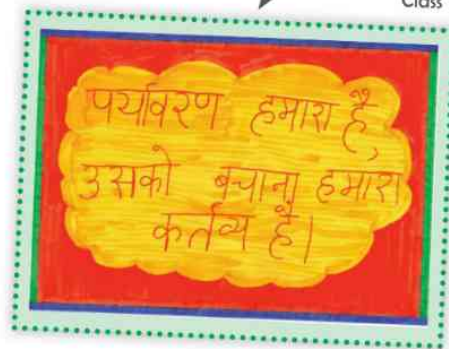 Class
पर्यावरण हमारा है,
उसको बचाना हमारा
कर्तव्य है।